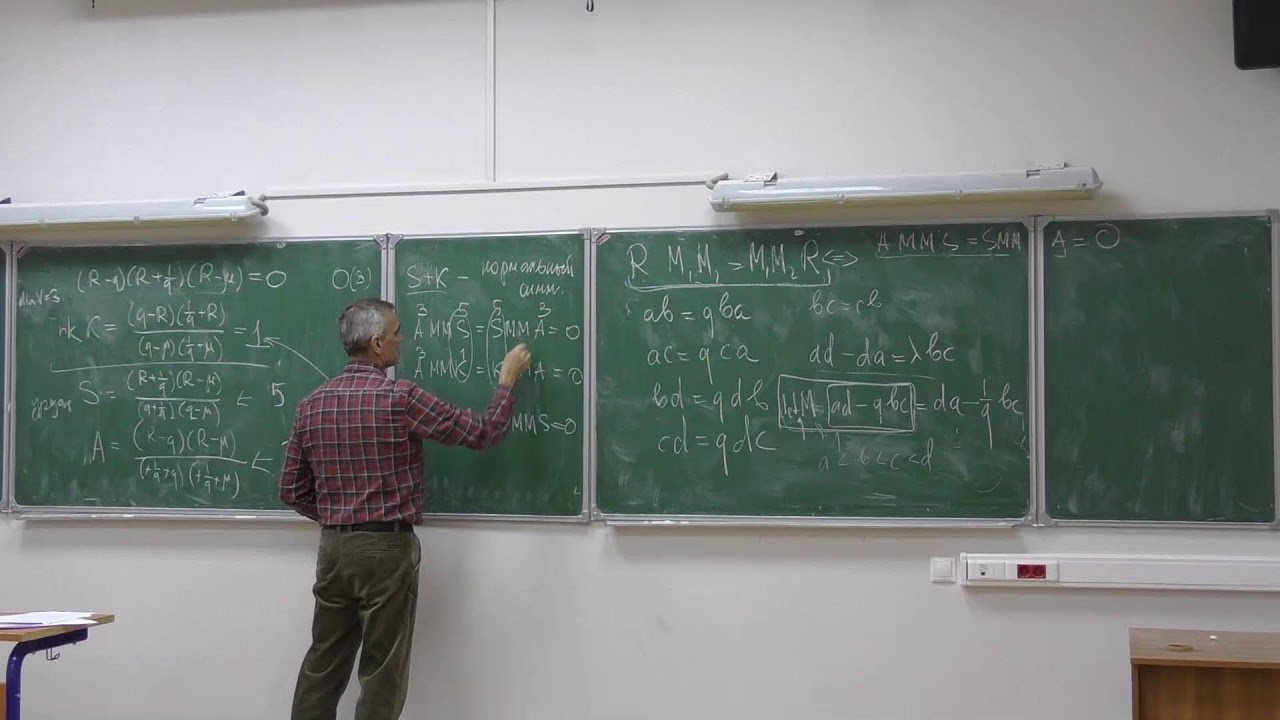 (R-q)(R+1/q)(R-μ)=0 O(3)
dim V=3
rk K = (q-R)(1/q+R) / (q-μ)(1/q+μ) = 1
S = (R+1/q)(R-μ) / (q+1/q)(q-μ) ← 5
A = (R-q)(R-μ) / (+1/q+q)(+1/q+μ) ←
S+K - нормальный
симм.
3 5 5 3
A M M S = S M M A = 0
3 1
A M M K = K A = 0
M M S = 0
R M₁M₂ = M₁M₂ R, ⇔ A M M S = S M M A = 0
ab = qba bc = cb
ac = qca ad-da = λbc
bd = qdb detqM = ad-qbc = da-1/q bc
cd = qdc a<b<c<d